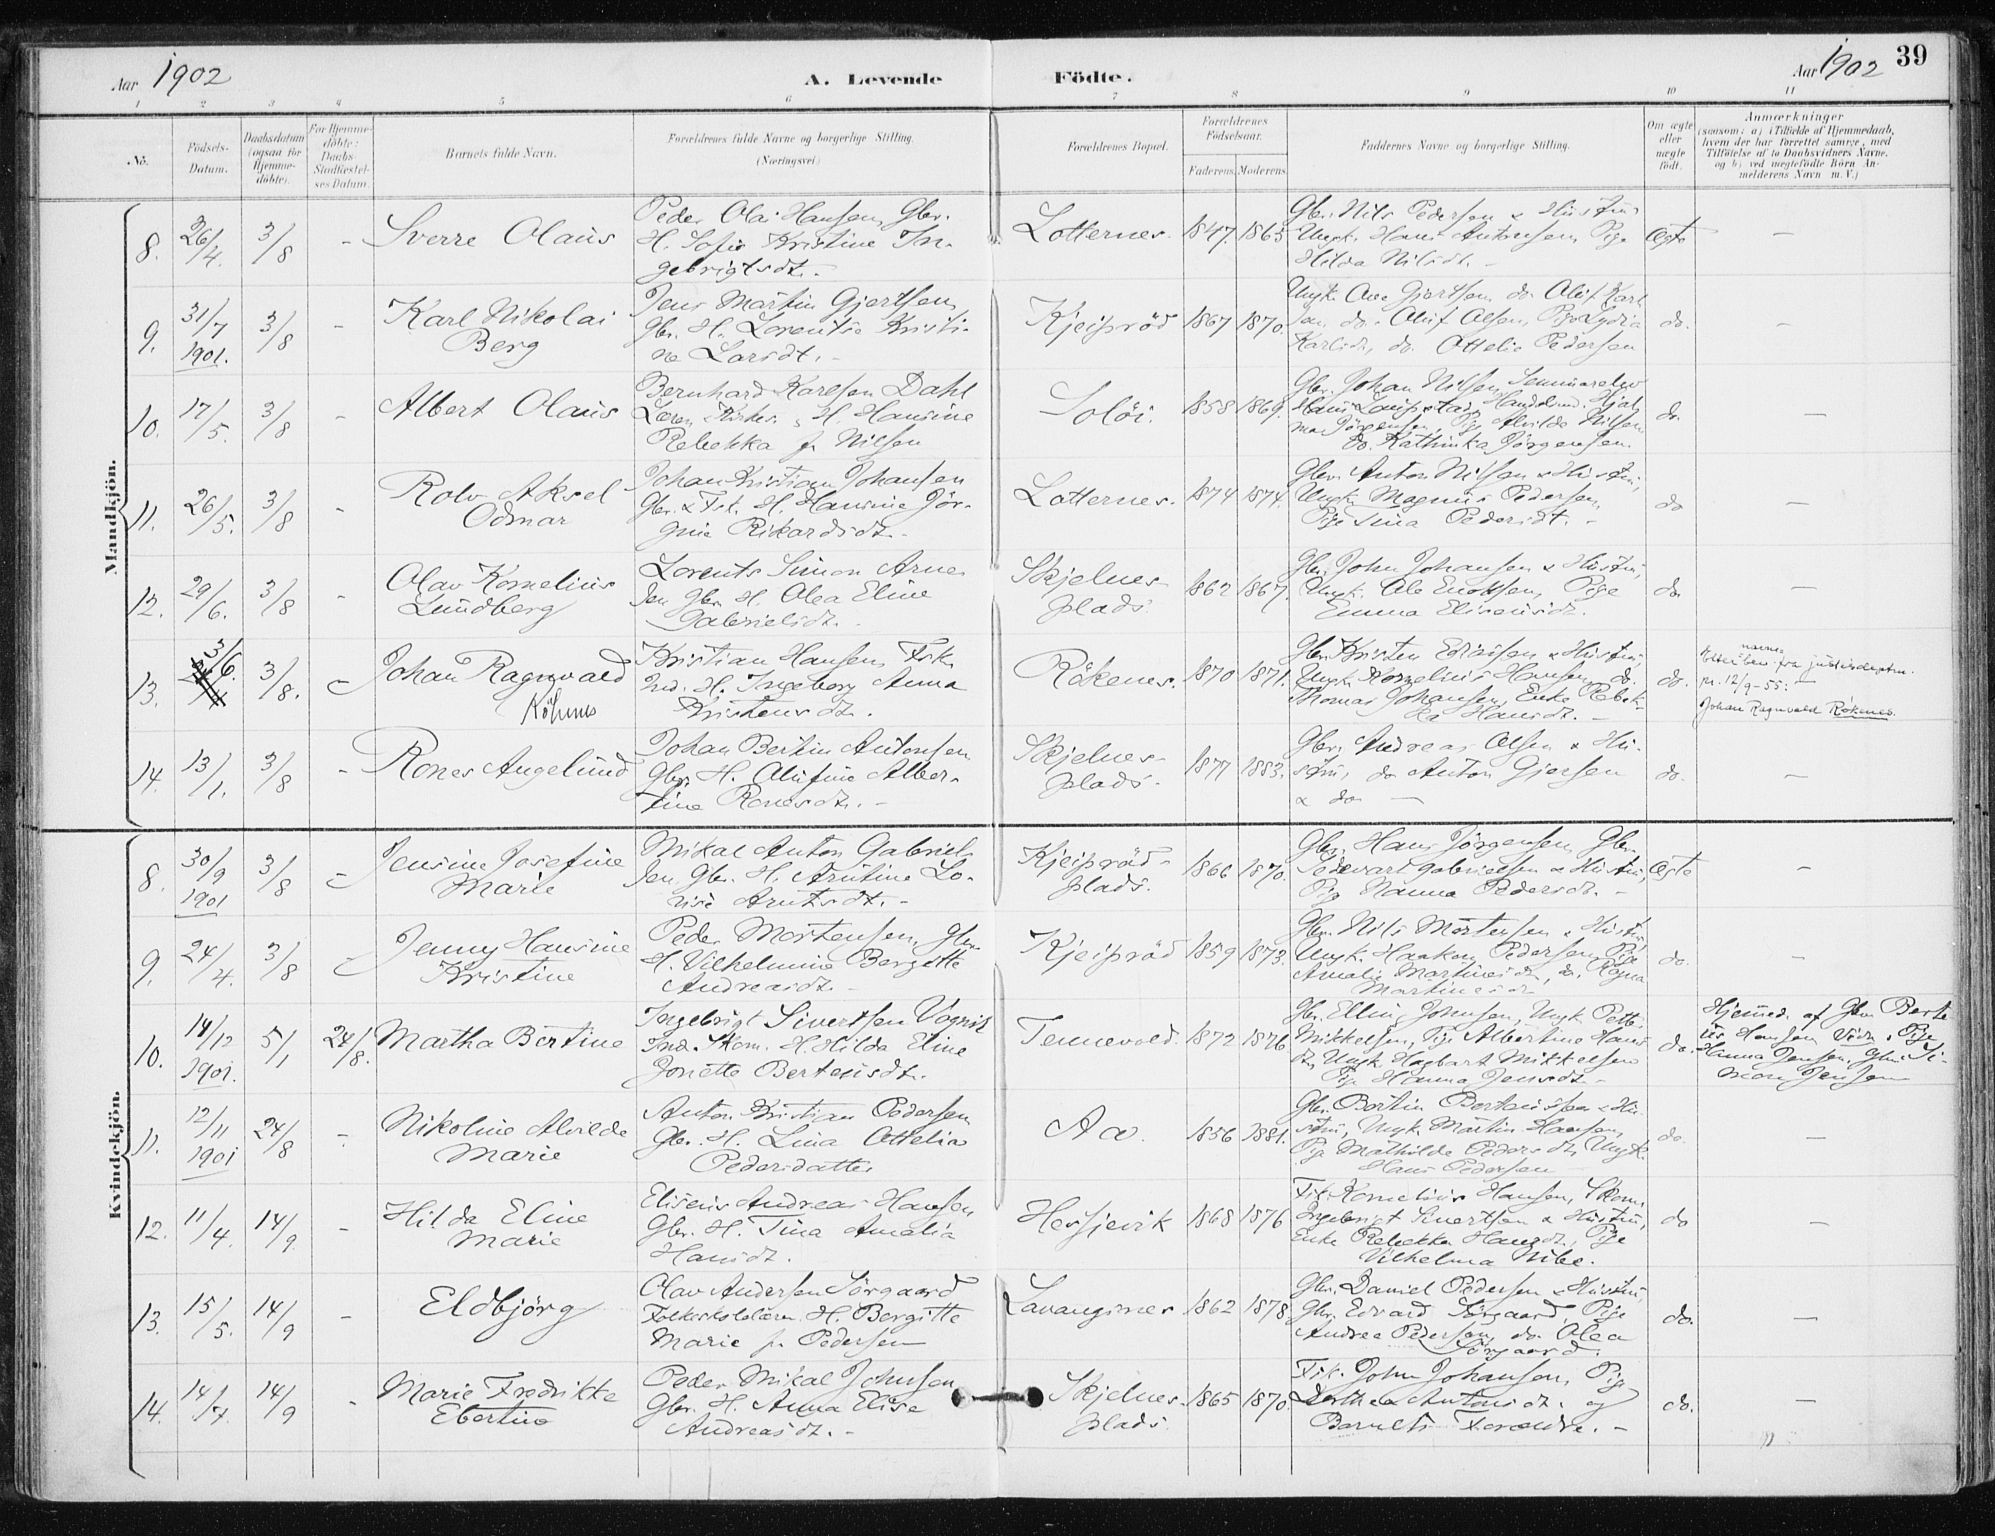 Aar 1902
A. Levende
Födte.
Aar 1902 39
1 2 3 4 5 6 7 8 9 10 11
No.
Födsels-
Datum.
Daabsdatum
(ogsaa for
Hjemme-
döbte).
For Hjemme-
döbte:
Daabs-
Stadfæstel-
ses Datum.
Barnets fulde Navn.
Forældrenes fulde Navne og borgerlige Stilling.
(Næringsvei)
Forældrenes Bopæl.
Forældrenes
Födselsaar.
Faderens. Moderens.
Faddernes Navne og borgerlige Stilling.
Om ægte
eller
uægte
födt.
Anmærkninger
(saasom: a) i Tilfælde af Hjemmedaab,
hvem der har forrettet samme, med
Tilföielse af to Daabsvidners Navne,
og b) ved uægtefödte Börn An-
melderens Navn m. V.)
Mandkjön.
8. 26/4. 3/8 - Sverre Olaus
Peder Olai Hansen, Gbr.
H. Sofie Kristine In-
gebrigtsdt. -
Lotternes. 1847. 1865
Gbr. Nils Pedersen & Hustru
Ungk. Hans Antonsen, Pige
Hilda Nilsdt. -
Ægte -
9. 31/7 1901. 3/8 -
Karl Nikolai
Berg
Jens Martin Gjertsen
Gbr. H. Lorentse Kristi-
ne Larsdt. -
Kjeiprød 1867 1870.
Ungk. Ove Gjertsen do Oluf Karl
sen, do. Oluf Olsen, Pige Lydia
Karlsdt, do. Ottelie Pedersen
do. -
10. 17/5. 3/8 - Albert Olaus
Bernhard Karlsen Dahl
H. Hansine
Rebekka f. Nilsen
Solöi. 1858 1869.
Gbr. Johan Nilsen,
Hjal-
mar Jörgensen, Pige Alvilda Nilsen
do. Kathinka Jörgensen.
do. -
11. 26/5. 3/8 -
Rolv Aksel
Odmar
Johan Kristian Johansen
Gbr. & Fsk. H. Hansine Jör-
gine Rikardsdt. -
Lotternes. 1874 1874.
Gbr. Anton Nilsen & Hustru,
Ungk. Magnus Pedersen
Pige Sina Pedersdt. -
do -
12. 29/6. 3/8 -
Olav Kornelius
Lundberg
Lorents Simon Arne
sen Gbr. H. Olea Eline
Gabrielsdt. -
Skjelnes-
plads. 1862 1867.
Gbr. John Johansen & Hustru,
Ungk. Ole Enoksen, Pige
Emma Eliseusdt.
do. -
13. 3/6. 3/8. -
Johan Ragnvald
Röknes
Kristian Hansen Fsk.
Ind. H. Ingeborg Anna
Kristensdt.
Rökenes. 1870 1871.
Gbr. Kristen Edisen & Hustru,
Ungk Kornelius Hansen do.
Thomas Johansen, Enke Rebek-
ka Hansdt. -
do.
navne
fra justisdeptm.
pr. 12/9-55: -
Johan Ragnvald Rökenes.
14. 13/1. 3/8 - Rones Angelund
Johan Bertin Antonsen
Gbr. H. Olufine Alber-
tine Ronesdt. -
Skjelnes-
plads. 1877 1883.
Gbr. Andreas Olsen & Hu-
stru, do Anton Gjersen
& do -
do. -
Kvindekjön.
8. 30/9 1901 3/8 -
Jensine Josefine
Marie
Mikal Anton Gabriel-
sen Gbr. H. Arntine Lo-
vise Arntsdt. -
Kjeiprød-
plads. 1866 1870.
Gbr. Hans Jörgensen, Gbr.
Sedevart Gabrielsen & Hustru,
Pige Nanna Pedersdt. -
Ægte -
9. 24/4. 3/8 -
Jenny Hansine
Kristine
Peder Mortensen, Gbr.
H. Vilhelmine Bergitte
Andreasdt. -
Kjeiprød 1859 1873.
Gbr. Nils Mortensen & Hustru
Ungk. Haakon Pedersen, Pige
Amalie Martinesdt, do. Ragna
Martinesdt
do. -
10. 14/12 1901. 5/1 24/8. Martha Bertine
Ingebrigt Sivertsen Vognik
Ind. Skom. H. Hilda Eline
Jonette Berteusdt.
Tennevold. 1872 1876
Gbr. Elling Johnsen, Ungk Petter
Mikkelsen, Pige Albertine Hans
dt, Ungk Hagbart Mikkelsen
Pige Hanna Jensdt. -
do.
Hjemmed. af Gbr. Berte
us Hansen Vidn. Pige
Hanna Jensen, Gbr. Si-
mon Jensen
11. 12/11 1901 24/8 -
Nikoline Alvilde
Marie
Anton Kristian Pedersen
Gbr. H. Lina Ottelia
Pedersdatter
Aa. 1856 1881.
Gbr. Bertin Berteussen & Hu-
stru, Ungk. Martin Hansen,
Pige Mathilde Pedersdt, Ungk.
Hans Pedersen
do. -
12. 11/4. 14/9. -
Hilda Eline
Marie
Eliseus Andreas Hansen
Gbr. H. Tina Amalia
Hansdt.
Hesjevik 1868 1876
Fsk. Kornelius Hansen, Skom.
Ingebrigt Sivertsen & Hustru,
Enke Rebekka Hansdt, Pige
Vilhelma Nibe.
do -
13. 15/5. 14/9 - Eldbjörg
Olav Andersen Sörgaard
Folkeskolelærer. H. Bergitte
Marie f. Pedersen
Lavangsnes 1862 1878
Gbr. Daniel Pedersen & Hustru,
Gbr. Edvard Sörgaard, Pige
Andrea Pedersen, do. Olea
Sörgaard.
do. -
14. 14/7. 14/9 -
Marie Fredrikke
Ebertine
Peder Mikal Johnsen
Gbr. H. Anna Elise
Andreasdt. -
Skjelnes-
plads. 1865 1870
Fsk. John Johansen, Pige
Dorthea Antonsdt. og
Barnets Forældre. -
do. -